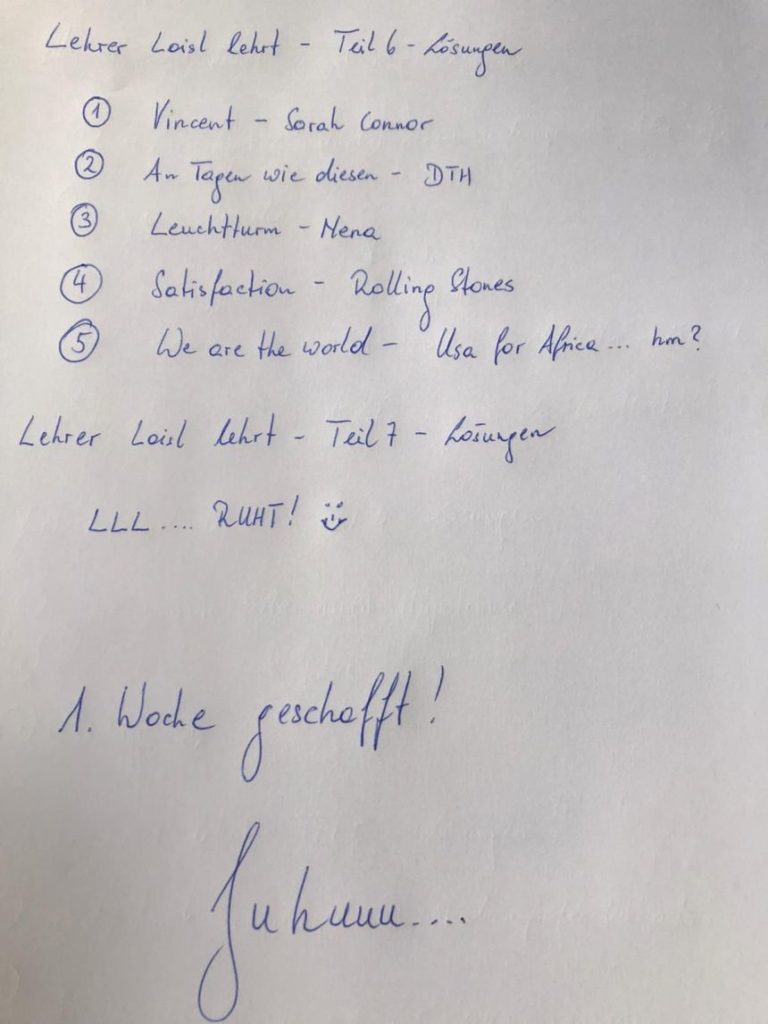 Lehrer Loisl lehrt - Teil 6 - Lösungen
① Vincent - Sarah Connor
② An Tagen wie diesen - DTH
③ Leuchtturm - Nena
④ Satisfaction - Rolling Stones
⑤ We are the world - Usa for Africa ... hm?
Lehrer Loisl lehrt - Teil 7 - Lösungen
LLL .... RUHT!
1. Woche geschafft!
Juhuuu....